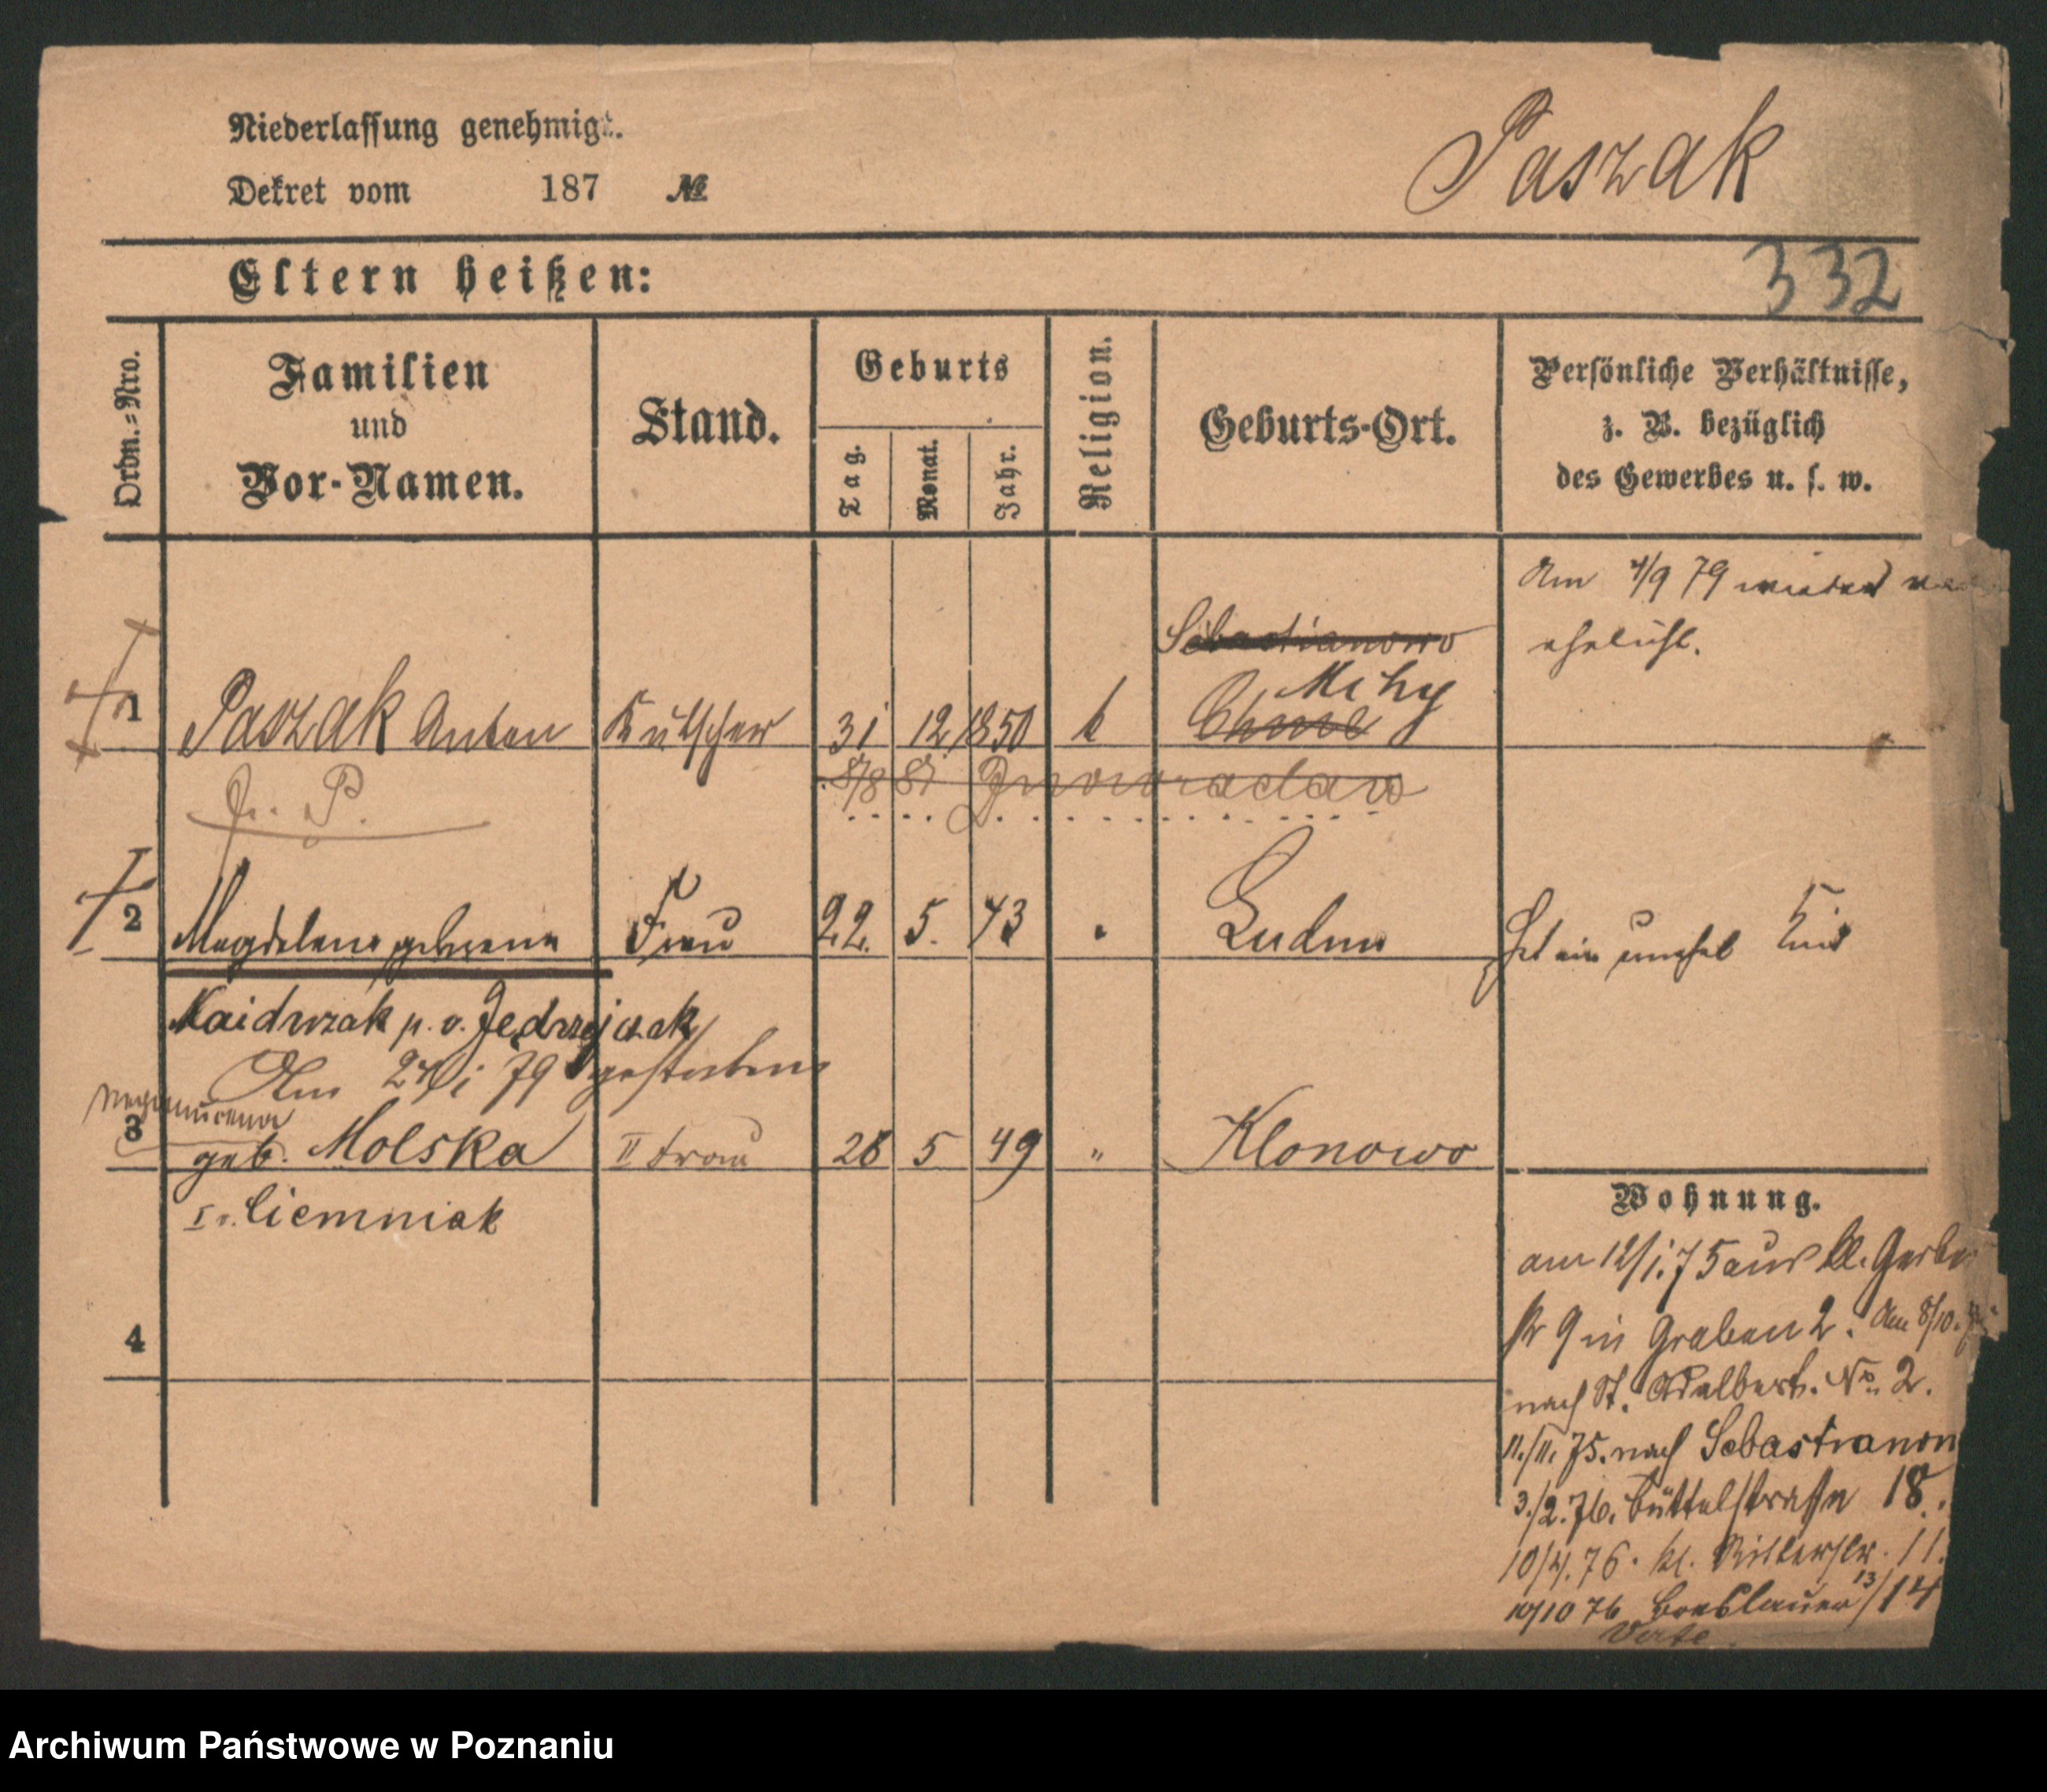 Niederlassung genehmigt.
Paszak
Dekret vom 187 №
332
Eltern heißen:
Ordn.=Nro.
Familien
und
Vor-Namen.
Stand.
Geburts
Tag.
Monat.
Jahr.
Religion.
Geburts-Ort.
Persönliche Verhältnisse,
z. B. bezüglich
des Gewerbes u. s. w.
Am 4/9 79 wieder ver
ehelicht.
Sebastianowo
1 Paszak Anton Kutscher 31 12 1850 k
8/8 81 Inowraclaw
2 Magdalena geborene Frau 22. 5. 43 Hat ein unehel Kind
Kaidrzak p. v. Jędrzejczak
Am 1 79 gestorben
3 geb. Molska II Frau 28 5 49 " Klonowo
I v. Ciemniak
4
Wohnung.
am 12/1. 75 aus kl. Gerber
str 9 in Graben 2. Am 8/10.
nach St. Adalbert. No. 2.
11./11. 75. nach Sebastianow
3./2. 76. Büttelstraße 18.
10/4. 76. kl. Ritterstr. 11.
10/10 76 Breslauer 13/14
Verte
Archiwum Państwowe w Poznaniu